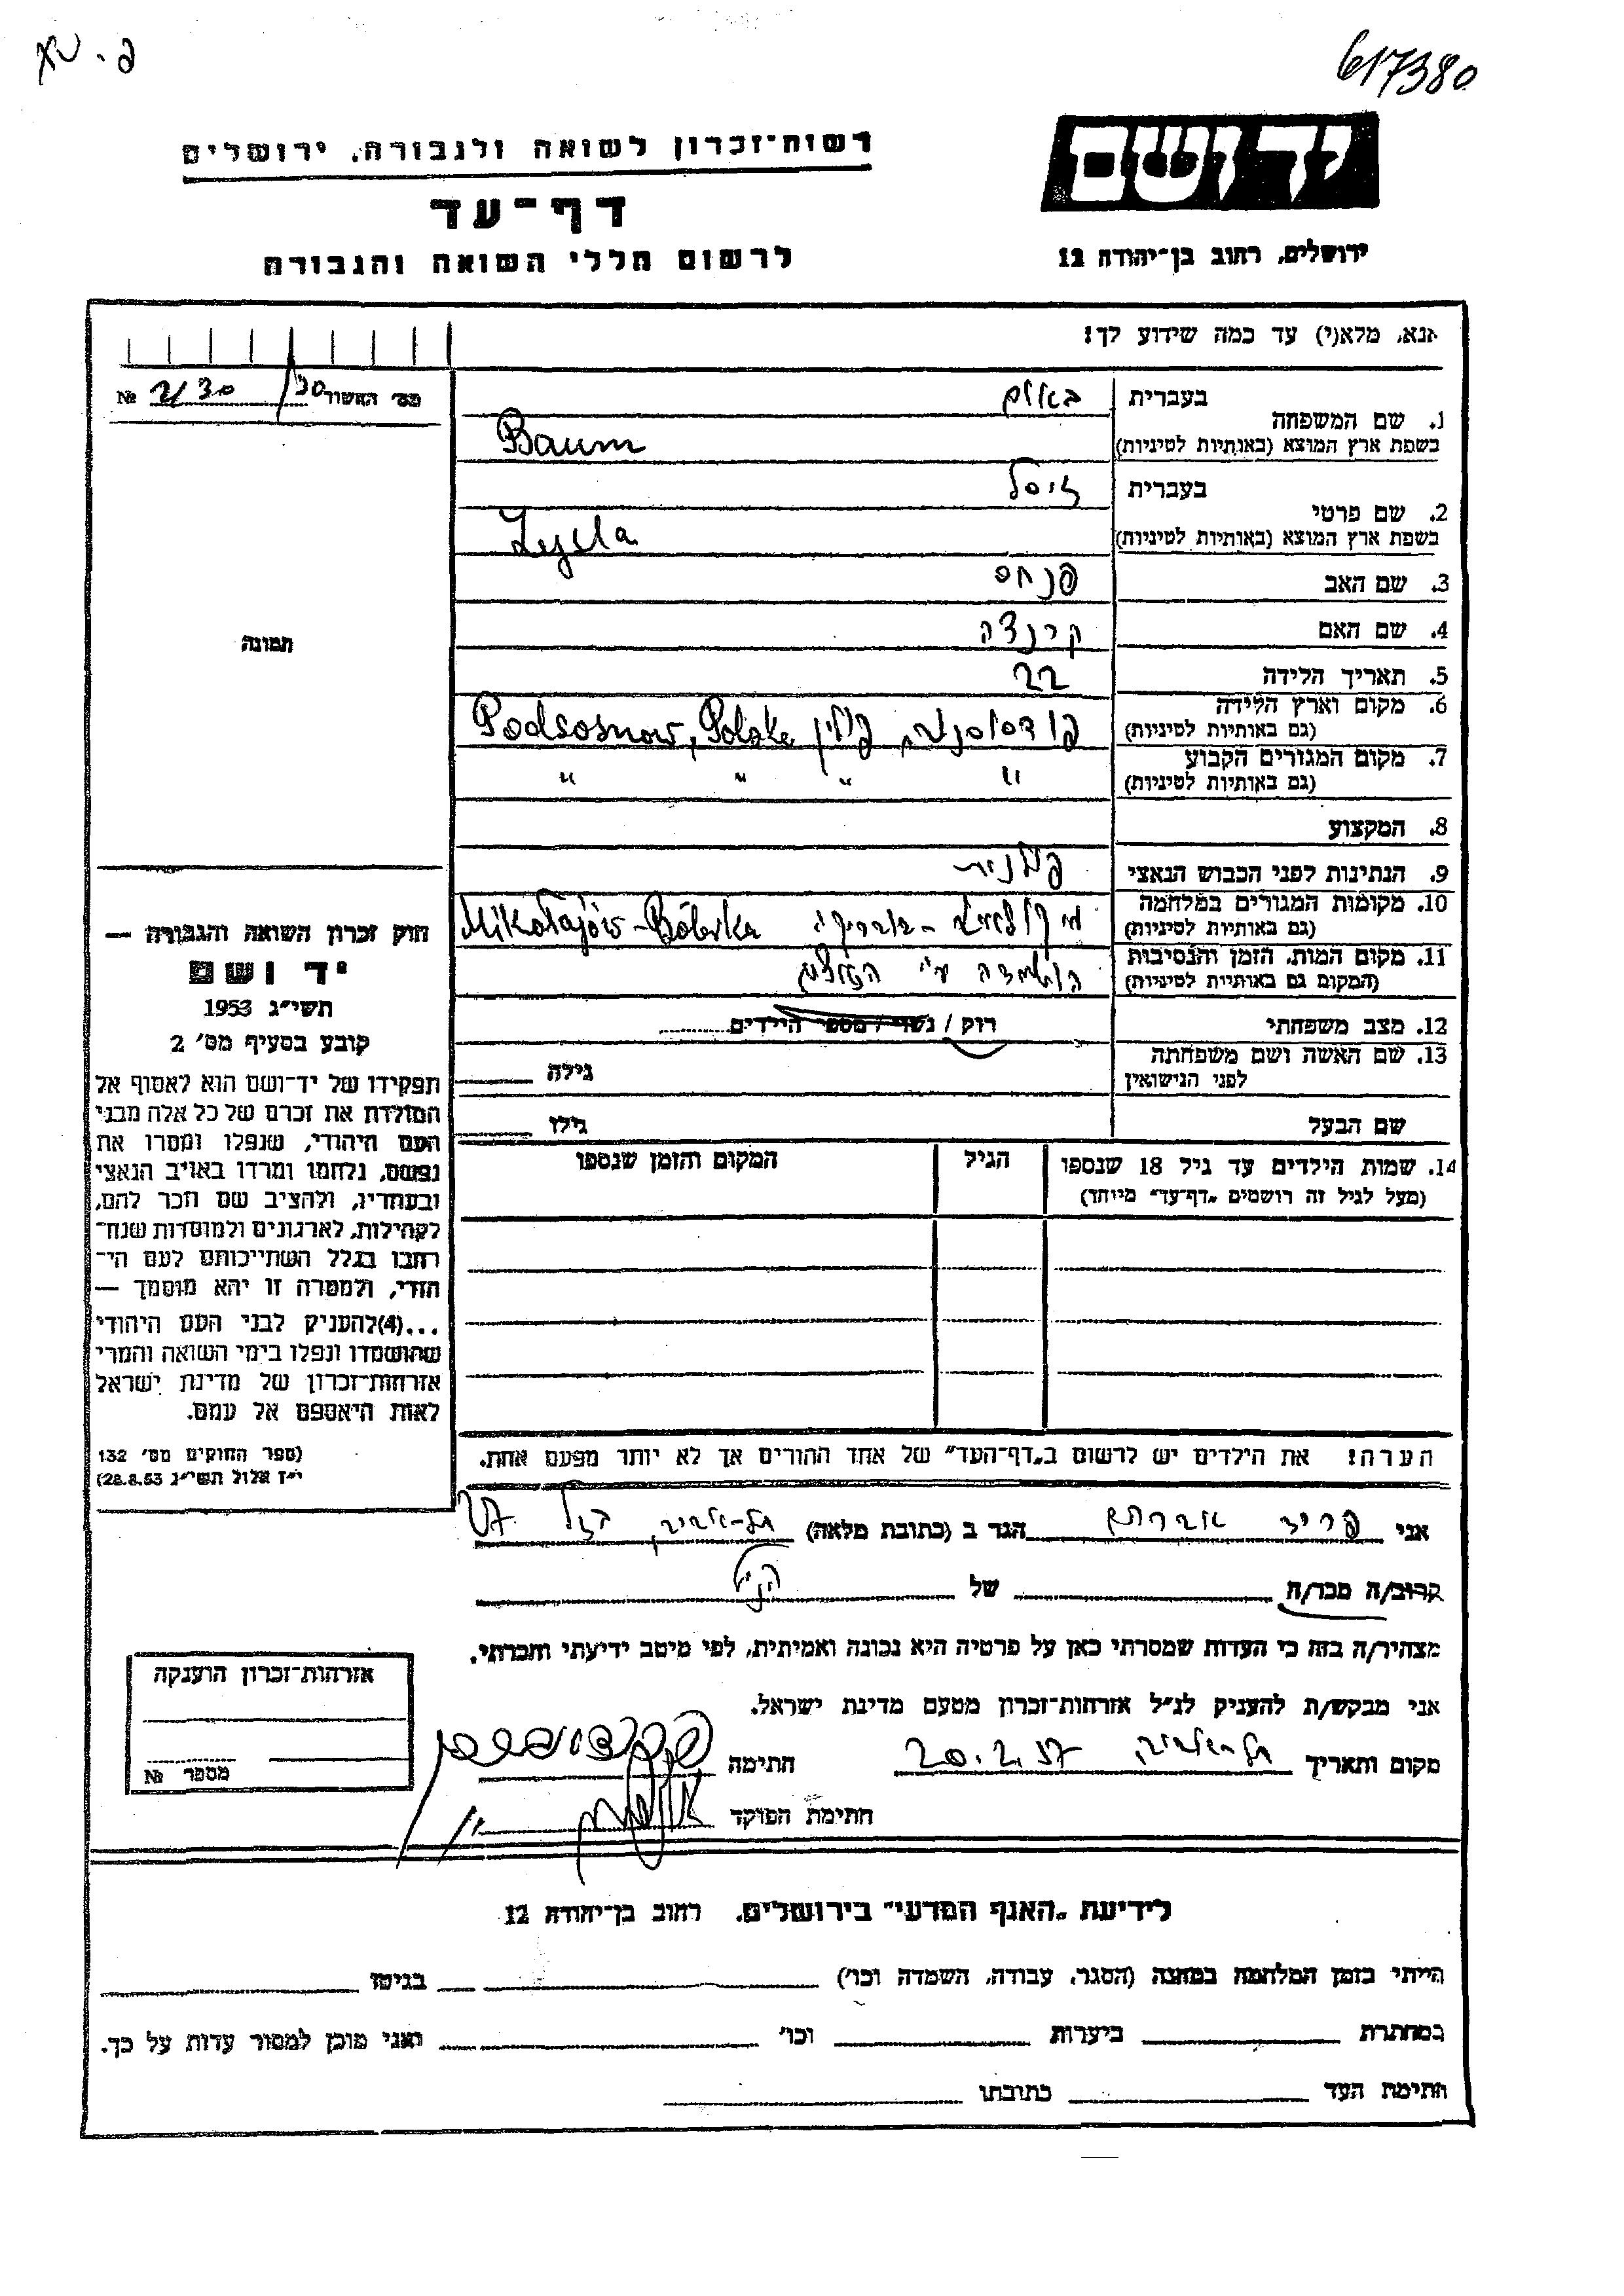 פ. אא
617380
רשות־זכרון לשואה ולגבורה, ירושלים
יד ושם
דף־עד
לרשום חללי השואה והגבורה
ירושלים, רחוב בן־יהודה 12
אנא, מלא(י) עד כמה שידוע לך!
מס׳ האשור № 2130/30
1. שם המשפחה
בעברית באום
בשפת ארץ המוצא (באותיות לטיניות) Baum
2. שם פרטי
בעברית זיסל
בשפת ארץ המוצא (באותיות לטיניות) Zysla
3. שם האב פנחס
4. שם האם קינדה
5. תאריך הלידה 22
6. מקום וארץ הלידה
(גם באותיות לטיניות) פודסוסנוב, פולין Podsosnow, Polska
7. מקום המגורים הקבוע
(גם באותיות לטיניות) " " " "
8. המקצוע
9. הנתינות לפני הכבוש הנאצי פולנית
10. מקומות המגורים במלחמה
(גם באותיות לטיניות) Mikołajów - Bóbrka
11. מקום המות, הזמן והנסיבות
(המקום גם באותיות לטיניות) הושמדה ע"י הנאצים
12. מצב משפחתי רווק / נשוי / מספר הילדים
13. שם האשה ושם משפחתה
לפני הנישואין גילה
שם הבעל גילו
14. שמות הילדים עד גיל 18 שנספו הגיל המקום והזמן שנספו
(מעל לגיל זה רושמים „דף־עד” מיוחד)
הערה! את הילדים יש לרשום ב„דף־העד” של אחד ההורים אך לא יותר מפעם אחת.
תמונה
חוק זכרון השואה והגבורה —
יד ושם
תשי״ג 1953
קובע בסעיף מס׳ 2
תפקידו של יד־ושם הוא לאסוף אל
המולדת את זכרם של כל אלה מבני
העם היהודי, שנפלו ומסרו את
נפשם, נלחמו ומרדו באויב הנאצי
ובעוזריו, ולהציב שם וזכר להם,
לקהילות, לארגונים ולמוסדות שנח־
רבו בגלל השתייכותם לעם הי־
הודי, ולמטרה זו יהא מוסמך —
...(4)להעניק לבני העם היהודי
שהושמדו ונפלו בימי השואה והמרי
אזרחות־זכרון של מדינת ישראל
לאות היאספם אל עמם.
(ספר החוקים מס׳ 132
י״ז אלול תשי״ג 28.8.53)
אני פריד אברהם הגר ב (כתובת מלאה) תל-אביב,
קרוב/ה מכר/ה של הנ"ל
מצהיר/ה בזה כי העדות שמסרתי כאן על פרטיה היא נכונה ואמיתית, לפי מיטב ידיעתי והכרתי.
אני מבקש/ת להעניק לנ״ל אזרחות־זכרון מטעם מדינת ישראל.
מקום ותאריך תל-אביב, 20.2.57 חתימה
חתימת הפוקד
אזרחות־זכרון הוענקה
מספר №
לידיעת „האגף המדעי” בירושלים, רחוב בן־יהודה 12
הייתי בזמן המלחמה במחנה (הסגר, עבודה, השמדה וכו׳) בגיטו
במחתרת ביערות וכו׳ ואני מוכן למסור עדות על כך.
חתימת העד כתובתו